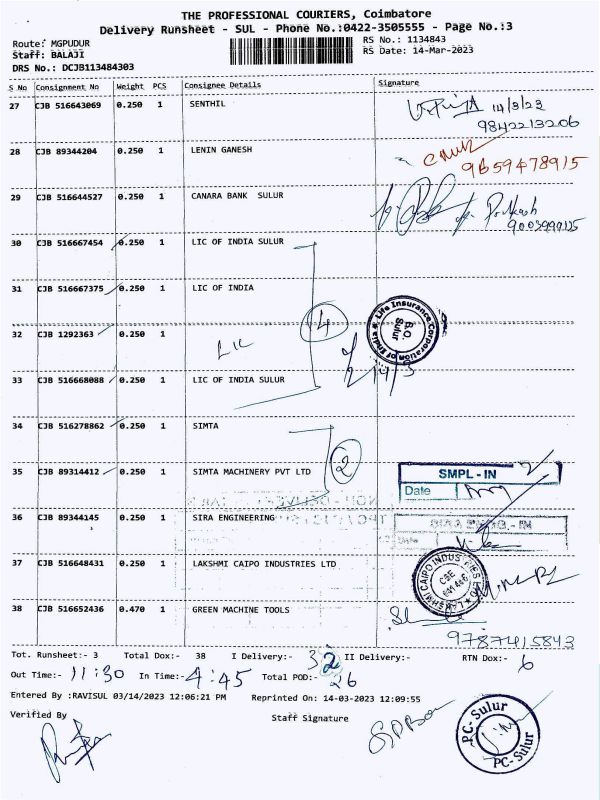 THE PROFESSIONAL COURIERS, Coimbatore
Delivery Runsheet - SUL - Phone No.:0422-3505555 - Page No.:3
Route: MGPUDUR
RS No.: 1134843
Staff: BALAJI
RS Date: 14-Mar-2023
DRS No.: DCJB113484303
S No Consignment No Weight PCS Consignee Details Signature
27 CJB 516643069 0.250 1 SENTHIL 14/3/23
9842213206
28 CJB 89344204 0.250 1 LENIN GANESH
9659478915
29 CJB 516644527 0.250 1 CANARA BANK SULUR
30 CJB 516667454 0.250 1 LIC OF INDIA SULUR
31 CJB 516667375 0.250 1 LIC OF INDIA
Life Insurance Corporation of India
B.O
Sulur
32 CJB 1292363 0.250 1 LIC 4
33 CJB 516668088 0.250 1 LIC OF INDIA SULUR
34 CJB 516278862 0.250 1 SIMTA
2
35 CJB 89314412 0.250 1 SIMTA MACHINERY PVT LTD
SMPL - IN
Date
36 CJB 89344145 0.250 1 SIRA ENGINEERING
37 CJB 516648431 0.250 1 LAKSHMI CAIPO INDUSTRIES LTD
38 CJB 516652436 0.470 1 GREEN MACHINE TOOLS
9787415843
Tot. Runsheet:- 3 Total Dox:- 38 I Delivery:- 32 II Delivery:- RTN Dox:- 6
Out Time:- 11:30 In Time:- 4:45 Total POD:- 26
Entered By :RAVISUL 03/14/2023 12:06:21 PM Reprinted On: 14-03-2023 12:09:55
Verified By
Staff Signature
PC-Sulur
PC-Sulur